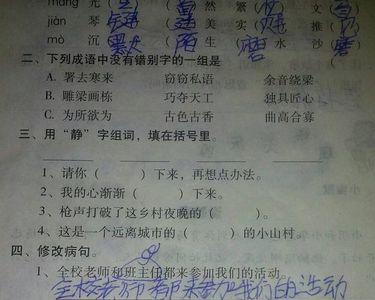 máng 光 然 繁 文
jiàn 琴 键 美 实 践 推
mò 沉 默 陌 生 磨 水 沙 磨
二、下列成语中没有错别字的一组是
A. 署去寒来 窃窃私语 余音绕梁
B. 雕梁画栋 巧夺天工 独具匠心
C. 为所欲为 古色古香 曲高合寡
三、用“静”字组词，填在括号里。
1、请你（ ）下来，再想点办法。
2、我的心渐渐（ ）下来。
3、枪声打破了这乡村夜晚的（ ）。
4、这是一个远离城市的（ ）的小山村。
四、修改病句。
1、全校老师和班主任都来参加我们的活动。
全校老师都来参加我们的活动